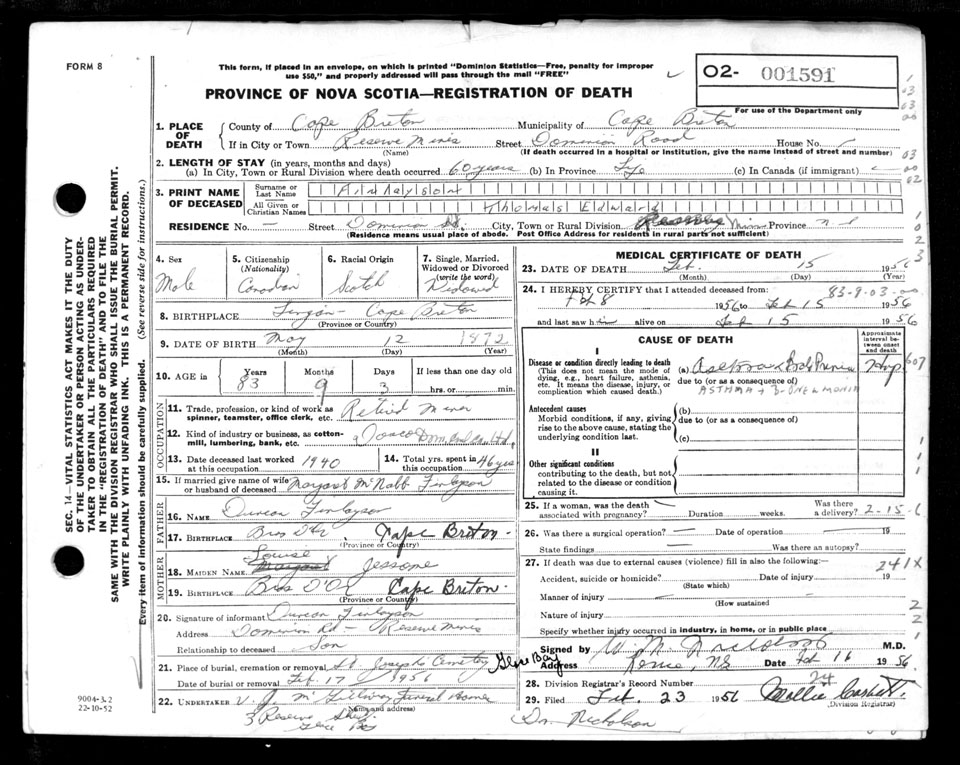 FORM 8
This form, if placed in an envelope, on which is printed "Dominion Statistics—Free, penalty for improper
use $50," and properly addressed will pass through the mail "FREE"
02- 001591
PROVINCE OF NOVA SCOTIA—REGISTRATION OF DEATH
For use of the Department only
1. PLACE OF DEATH
County of Cape Breton Municipality of Cape Breton
If in City or Town Reserve Mines Street Dominion Road House No.
(Name) (If death occurred in a hospital or institution, give the name instead of street and number)
2. LENGTH OF STAY (in years, months and days)
(a) In City, Town or Rural Division where death occurred 60 years (b) In Province Life (c) In Canada (if immigrant)
3. PRINT NAME OF DECEASED
Surname or Last Name Finlayson
All Given or Christian Names Thomas Edward
RESIDENCE No. — Street Dominion Rd. City, Town or Rural Division Mines Province N S
(Residence means usual place of abode. Post Office Address for residents in rural parts not sufficient)
4. Sex Male
5. Citizenship (Nationality) Canadian
6. Racial Origin Scotch
7. Single, Married, Widowed or Divorced (write the word) Widowed
8. BIRTHPLACE Cape Breton
(Province or Country)
9. DATE OF BIRTH May 12 1872
(Month) (Day) (Year)
10. AGE in Years 83 Months 9 Days 3 If less than one day old
hrs. or min.
OCCUPATION
11. Trade, profession, or kind of work as spinner, teamster, office clerk, etc. Retired Miner
12. Kind of industry or business, as cotton-mill, lumbering, bank, etc. Dosco Dom. Coal Ltd.
13. Date deceased last worked at this occupation 1940
14. Total yrs. spent in this occupation 46 yrs
15. If married give name of wife or husband of deceased Margaret McNabb Finlayson
FATHER
16. NAME Duncan Finlayson
17. BIRTHPLACE Bras D'Or, Cape Breton
(Province or Country)
MOTHER
18. MAIDEN NAME Louise Jessome
19. BIRTHPLACE Bras D'Or Cape Breton
(Province or Country)
20. Signature of informant Duncan Finlayson
Address Dominion Rd — Reserve Mines
Relationship to deceased Son
21. Place of burial, cremation or removal St Josephs Cemetery Glace Bay
Date of burial or removal Feb 17 1956
22. UNDERTAKER V. J. McGillivray Funeral Home
(Name and address)
3 Reserve St.
Glace Bay
MEDICAL CERTIFICATE OF DEATH
23. DATE OF DEATH Feb. 15 1956
(Month) (Day) (Year)
24. I HEREBY CERTIFY that I attended deceased from: 83-9-03-00
Feb 8 1956 to Feb 15 1956
and last saw him alive on Feb 15 1956
CAUSE OF DEATH
Approximate interval between onset and death
I
Disease or condition directly leading to death
(This does not mean the mode of dying, e.g., heart failure, asthenia, etc. It means the disease, injury, or complication which caused death.)
(a) Asthma
due to (or as a consequence of)
Antecedent causes
Morbid conditions, if any, giving rise to the above cause, stating the underlying condition last.
(b)
due to (or as a consequence of)
(c)
II
Other significant conditions
contributing to the death, but not related to the disease or condition causing it.
25. If a woman, was the death associated with pregnancy? Duration weeks. Was there a delivery? 2-15-6
26. Was there a surgical operation? — Date of operation 19
State findings — Was there an autopsy?
27. If death was due to external causes (violence) fill in also the following:— 241X
Accident, suicide or homicide? Date of injury 19
(State which)
Manner of injury
(How sustained)
Nature of injury
Specify whether injury occurred in industry, in home, or in public place
Signed by M.D.
Address Reserve, NS Date Feb 16 1956
28. Division Registrar's Record Number 24
29. Filed Feb. 23 1956 Mollie
(Division Registrar)
Dr. Nicholson
SEC. 14—VITAL STATISTICS ACT MAKES IT THE DUTY
OF THE UNDERTAKER OR PERSON ACTING AS UNDER-
TAKER TO OBTAIN ALL THE PARTICULARS REQUIRED
IN THE "REGISTRATION OF DEATH" AND TO FILE THE
SAME WITH THE DIVISION REGISTRAR WHO SHALL ISSUE THE BURIAL PERMIT.
WRITE PLAINLY WITH UNFADING INK. THIS IS A PERMANENT RECORD.
Every item of information should be carefully supplied. (See reverse side for instructions.)
9004-3.2
22-10-52